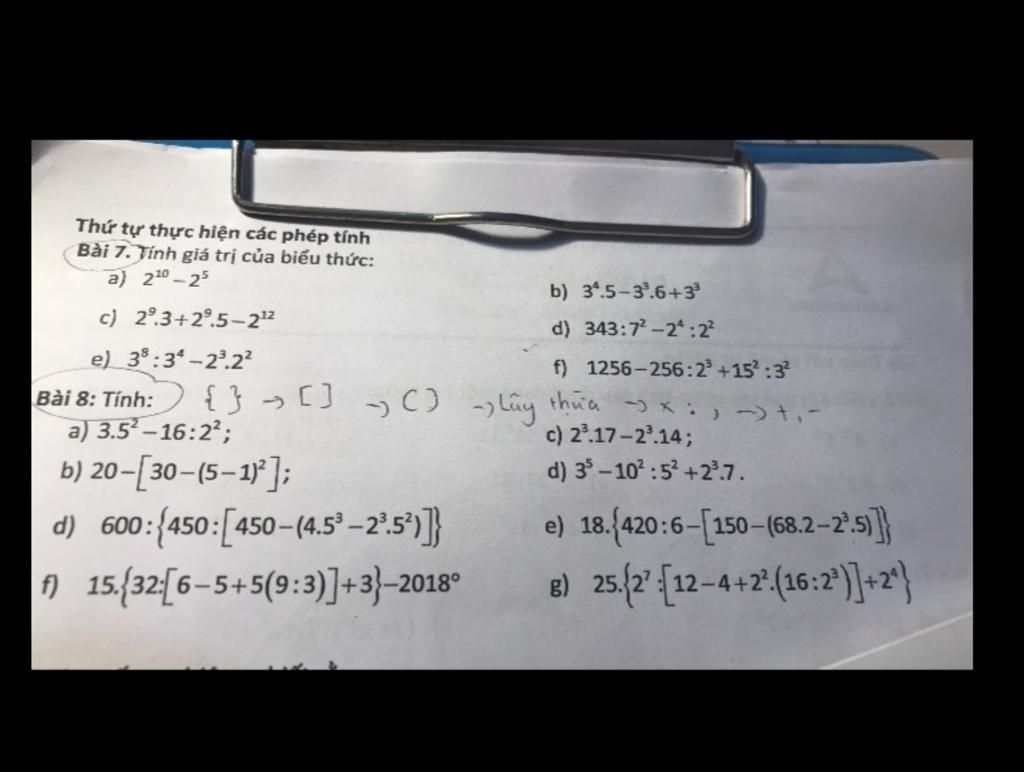 Thứ tự thực hiện các phép tính
Bài 7. Tính giá trị của biểu thức:
a) 2¹⁰ – 2⁵
b) 3⁴.5 – 3³.6 + 3³
c) 2⁹.3 + 2⁹.5 – 2¹²
d) 343 : 7² – 2⁴ : 2²
e) 3⁸ : 3⁴ – 2³.2²
f) 1256 – 256 : 2³ + 15² : 3²
Bài 8: Tính: { } → [ ] → ( ) → Lũy thừa → × : , → +, -
a) 3.5² – 16 : 2² ;
c) 2³.17 – 2³.14 ;
b) 20 – [30 – (5 – 1)²] ;
d) 3⁵ – 10² : 5² + 2³.7 .
d) 600 : {450 : [450 – (4.5³ – 2³.5²)]}
e) 18.{420 : 6 – [150 – (68.2 – 2³.5)]}
f) 15.{32:[6 – 5 + 5(9 : 3)] + 3} – 2018⁰
g) 25.{2⁷ : [12 – 4 + 2².(16 : 2³)] + 2⁴}